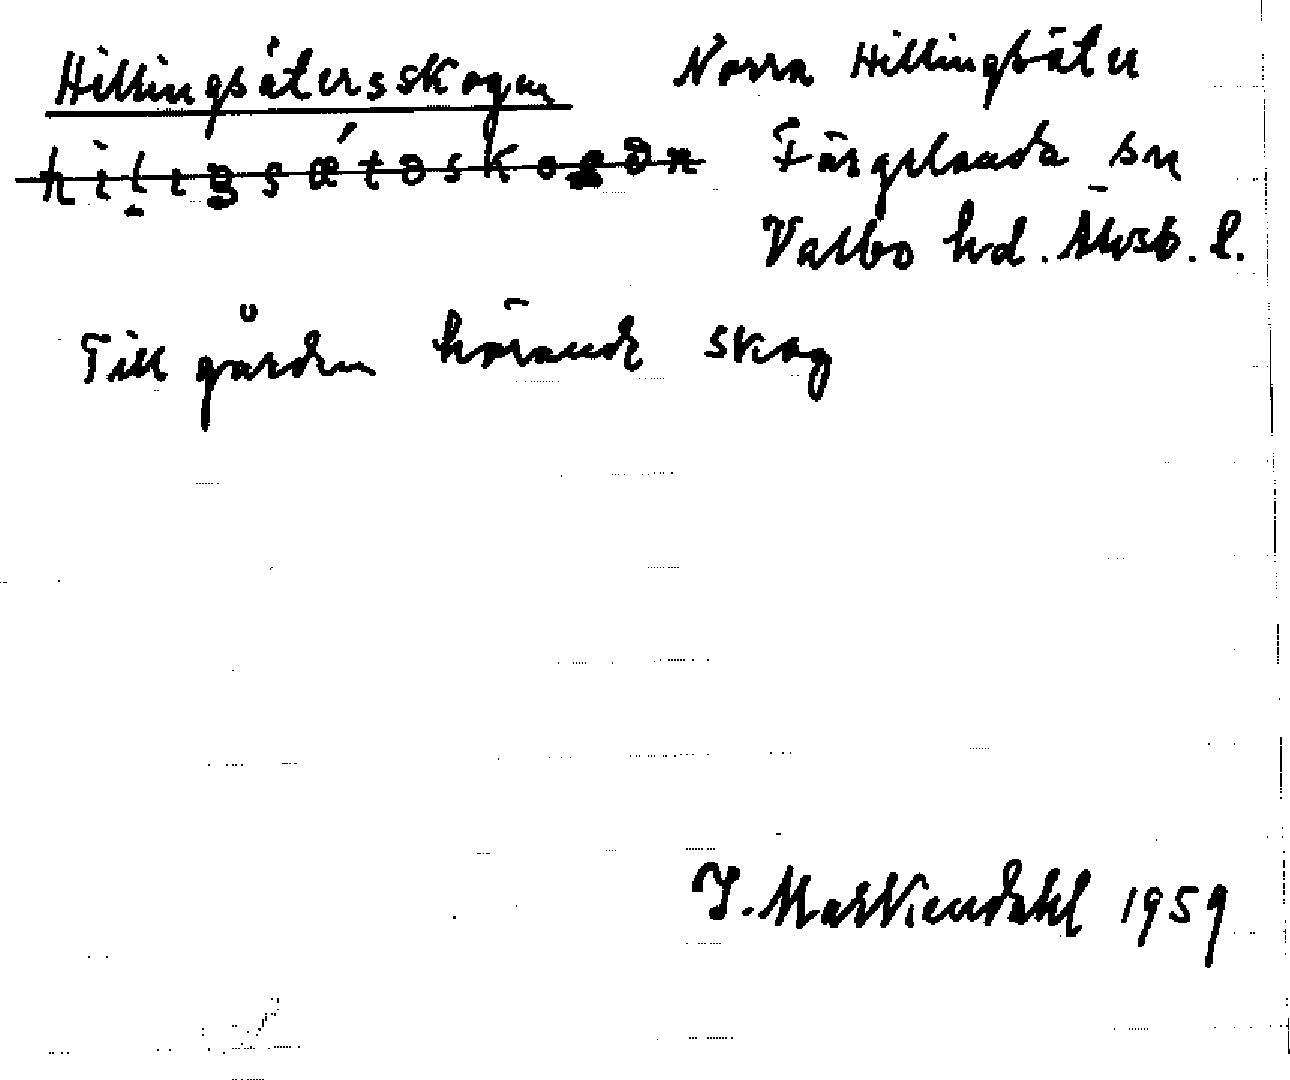 Hillingsätersskogen
Norra Hillingsäter
Färgelanda sn
Valbo hd. Älvsb. l.
Till gården hörande skog
1959